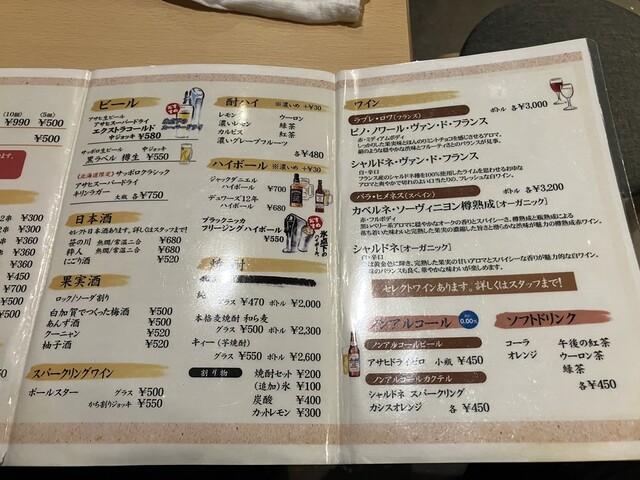 (10個) (5個)
¥990 ¥500
¥500
¥300
¥360
¥360
¥360
¥450
¥700
¥500
¥300
ビール
アサヒ生ビール
アサヒスーパードライ
エクストラコールド
中ジョッキ ¥580
サッポロ生ビール 中ジョッキ
黒ラベル 樽生 ¥550
(北海道限定) サッポロクラシック
アサヒスーパードライ
キリンラガー 大瓶 各¥750
日本酒
セレクト日本酒あります、詳しくはスタッフまで!
笹の川 熱燗/常温二合 ¥680
粋人 熱燗/常温二合 ¥680
にごり酒 ¥520
果実酒
ロック/ソーダ割り
白加賀でつくった梅酒 ¥500
あんず酒 ¥500
クーニャン ¥520
柚子酒 ¥520
スパークリングワイン
ポールスター グラス ¥500
から割りジョッキ ¥550
酎ハイ ※濃いめ +¥30
レモン ウーロン
濃いレモン 緑茶
カルピス 紅茶
濃いグレープフルーツ
各¥480
ハイボール ※濃いめ +¥30
ジャックダニエル
ハイボール ¥700
デュワーズ12年
ハイボール ¥680
ブラックニッカ
フリージングハイボール
¥550
焼酎
グラス ¥470 ボトル ¥2,000
本格麦焼酎 和ら麦
グラス ¥500 ボトル ¥2,300
キィー(芋焼酎)
グラス ¥550 ボトル ¥2,600
割り物
焼酎セット ¥200
(追加)氷 ¥100
炭酸 ¥400
カットレモン ¥300
ワイン
ラブレ・ロワ(フランス) ボトル 各¥3,000
ピノ・ノワール・ヴァン・ド・フランス
赤・ミディアムボディ
しっかりした果実味とほんのりミントチョコを感じさせるアロマ。
絹のような穏やかな渋味とフルーティさとのバランスが見事。
シャルドネ・ヴァン・ド・フランス
白・辛口
フランス産のシャルドネ種を100%使用したライムを思わせるおゆな
アロマと爽やかで切れのよい口当たりの、フレッシュな白ワイン。
パラ・ヒメネス(スペイン) ボトル 各¥3,200
カベルネ・ソーヴィニヨン樽熟成[オーガニック]
赤・フルボディ
シャルドネ[オーガニック]
白・辛口
は黄金色に輝き、完熟した果実の甘いアロマとスパイシーな香りが魅力的な白ワイン。
味のバランスも良く、華やかな味わいが楽しめます。
セレクトワインあります。詳しくはスタッフまで!
ノンアルコール 0.00%
ノンアルコールビール
アサヒドライゼロ 小瓶 ¥450
ノンアルコールカクテル
シャルドネ スパークリング
カシスオレンジ 各¥450
ソフトドリンク
コーラ 午後の紅茶
オレンジ ウーロン茶
緑茶
各¥450